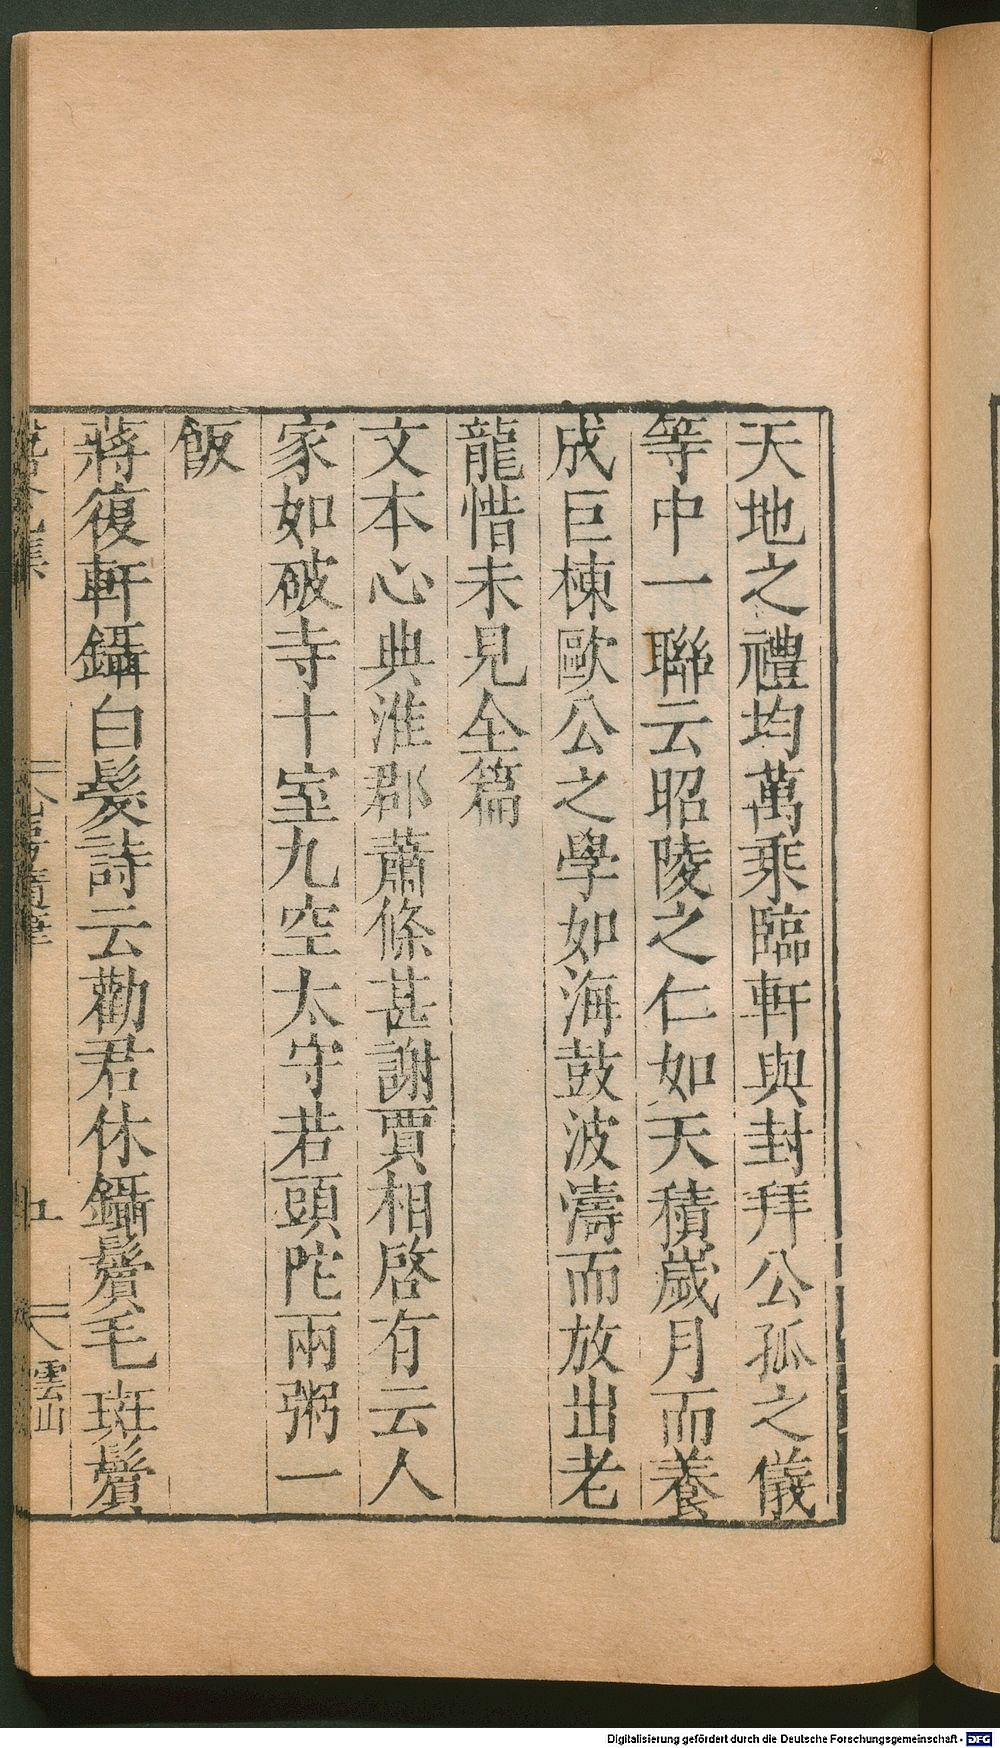 天地之禮均萬乘臨軒與封拜公孤之儀
等中一聯云昭陵之仁如天積歲月而養
成巨棟歐公之學如海鼓波濤而放出老
龍惜未見全篇
文本心典淮郡蕭條甚謝賈相啓有云人
家如破寺十室九空太守若頭陀兩粥一
飯
蔣復軒鑷白髮詩云勸君休鑷鬢毛斑鬢
五
雲山
Digitalisierung gefördert durch die Deutsche Forschungsgemeinschaft - DFG